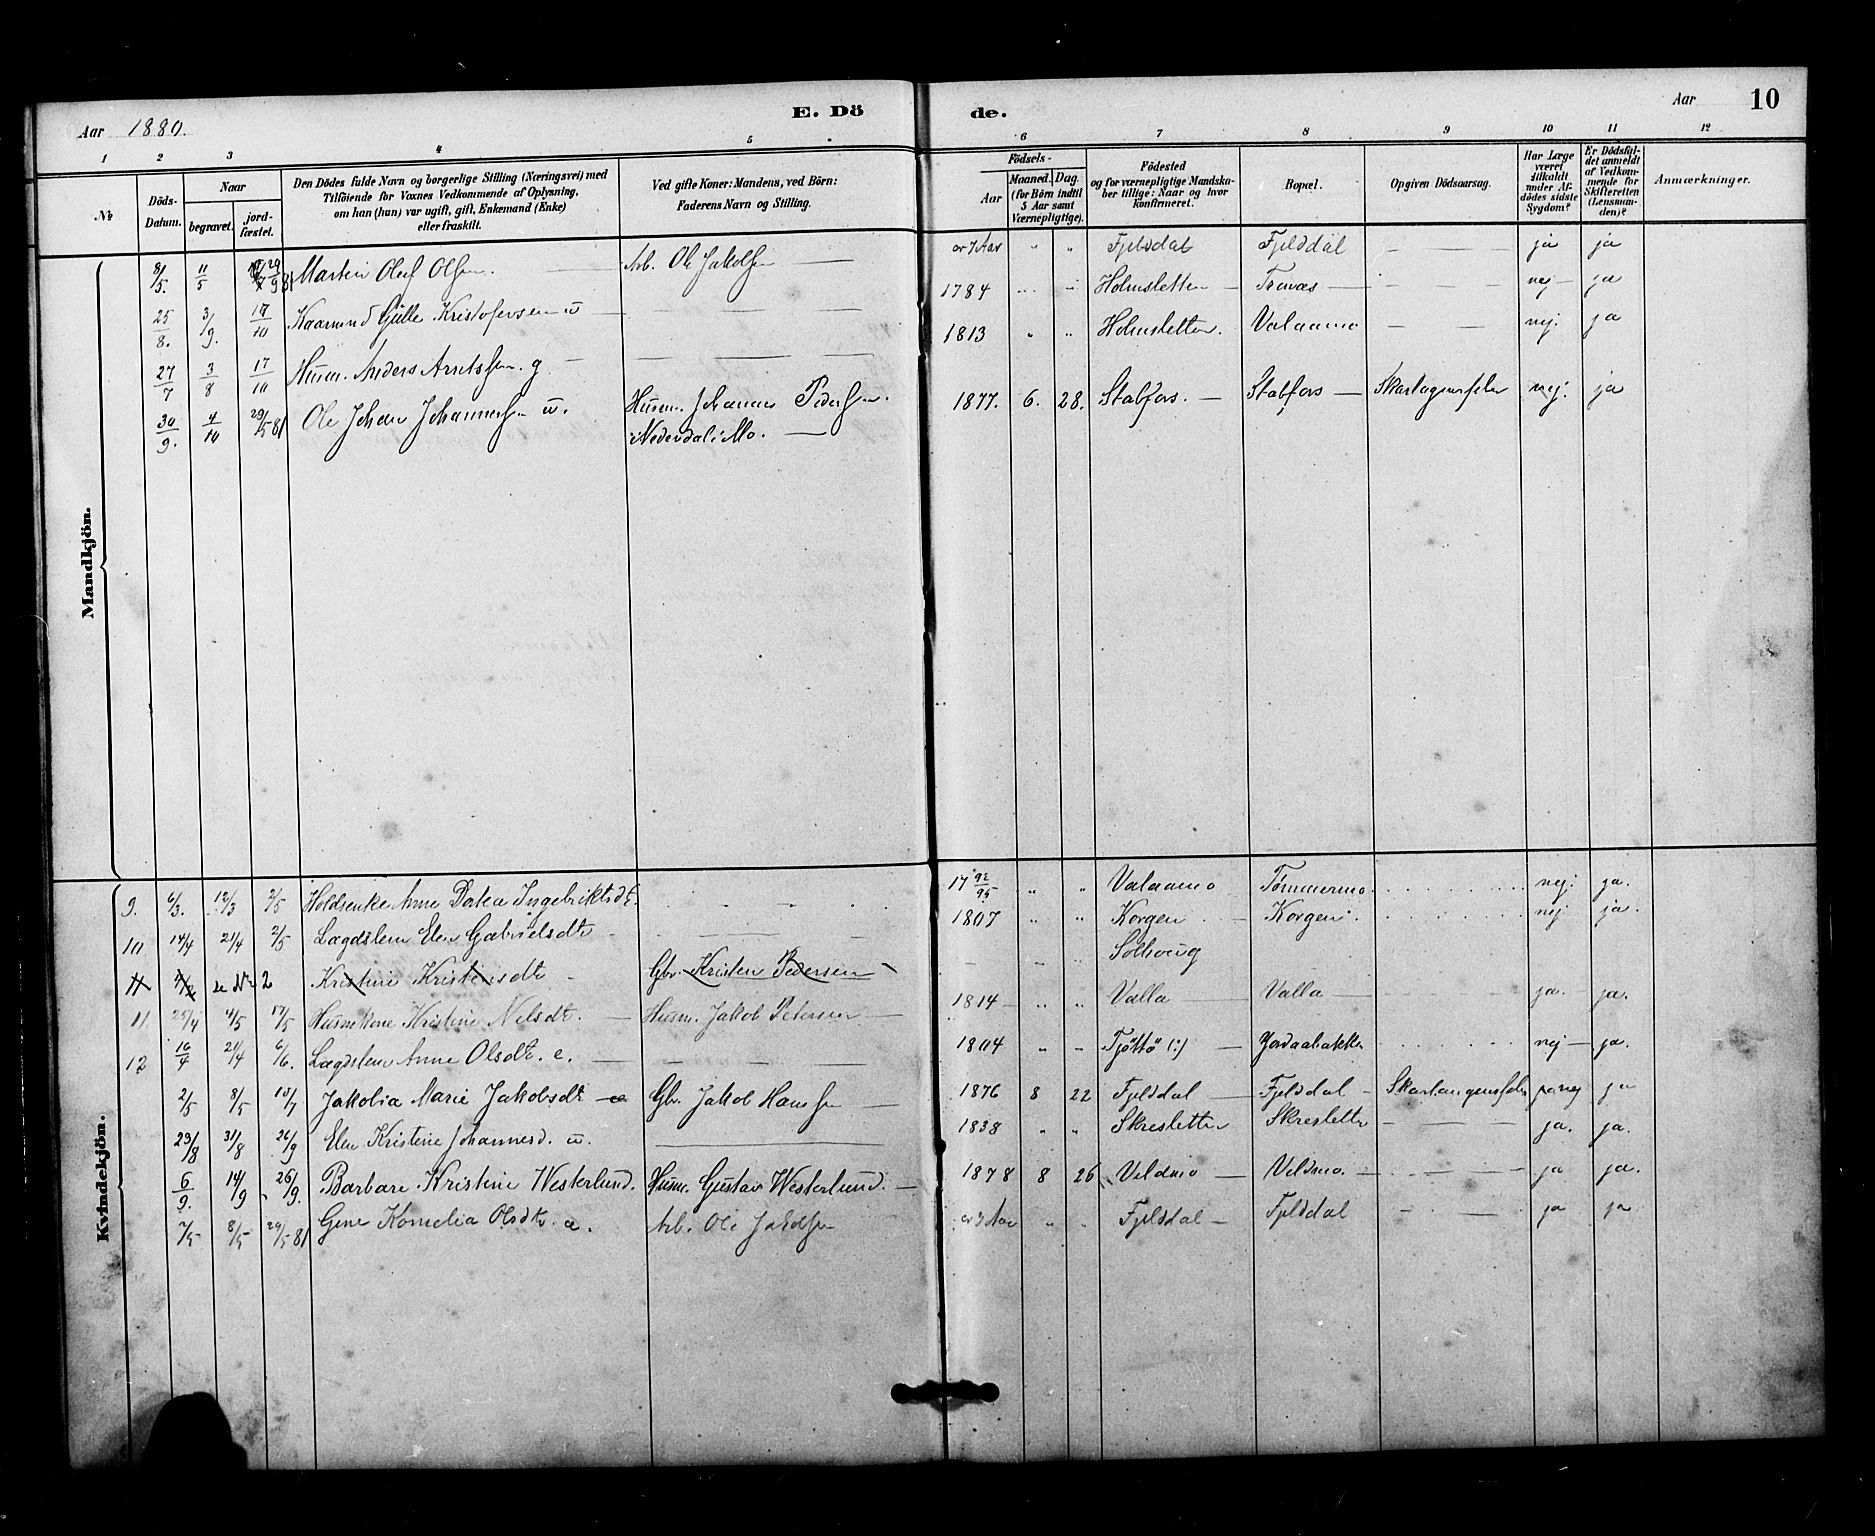 Aar 1880. E. Dö de. Aar 10
1 2 3 4 5 6 7 8 9 10 11 12
No
Döds-Datum.
Naar
begravet.
jord-fæstet.
Den Dödes fulde Navn og borgerlige Stilling (Næringsvei) med
Tilföiende for Voxnes Vedkommende af Oplysning,
om han (hun) var ugift, gift, Enkemand (Enke)
eller fraskilt.
Ved gifte Koner: Mandens, ved Börn:
Faderens Navn og Stilling.
Födsels-
Aar
Maaned. Dag.
(for Börn indtil
5 Aar samt
Værnepligtige).
Födested
og for værnepligtige Mandska-
ber tillige: Naar og hvor
konfirmeret.
Bopæl.
Opgiven Dödsaarsag.
Har Læge
været
tilkaldt
under Af-
dödes sidste
Sygdom?
Er Dödsfal-
det anmeldt
af Vedkom-
mende for
Skifteretten
(Lensman-
den)?
Anmærkninger.
Mandkjön.
8/5. 11/5 Martin Oluf Olsen. Arb. Ole Jakobsen 7 Aar " " Fjelddal Fjelddal — — ja ja
25/8. 3/9. 17/10 Kristofersen u — 1784 " " Holmsletten — — — nej — ja
27/7 3/8 17/10 Husm. Anders g — 1813 " " Holmsletten. Valaamo — — nej. ja
30/9. 4/10 29/5 81 Ole Johan Johannessen u. Husm. Johannes Pedersen. 1877. 6. 28. Stabfors. — Stabfors — nej. ja
i Mo. —
Kvindekjön.
9. 6/3. 12/3 2/5 Anne Ingebriktsdt. 17 92/95 " " Valaamo Tømmermo. nej. ja.
10 14/4 21/4 2/5 Lægdslem Elen Gabrielsdtr 1807 " " Korgen — Korgen. nej ja.
11 se Nr 2 Kristine Kristensdtr Gbr. Kristen Pedersen
11. 4/5 17/5 Kristine Nilsdtr. Husm. Jakob Petersen 1814 — " " Valla — Valla — ja. ja.
12 16/4 21/4 6/6. Lægdslem Anne Olsdtr. e. — 1804 " " Tjöttö (:) — nej — ja.
2/5 8/5 18/7 Jakobia Marie Jakobsdtr Gbr. Jakob Hansen — 1876 8 22 Fjelddal — Fjelddal — ja
29/8 31/8 26/9 Elen Kristine Johannesd. u. — 1838 " " Skresletten Skresletten — ja. ja.
6/9. 14/9 26/9. Barbare Kristine Westerlund. Husm. Gustav Westerlund. — 1878 8 26 Veldmo — Veldmo. — ja ja.
7/5 8/5 29/5 81 Gine Kornelia Olsdtr. Arb. Ole Jakobsen 3 Aar " " Fjelddal — Fjelddal — ja ja